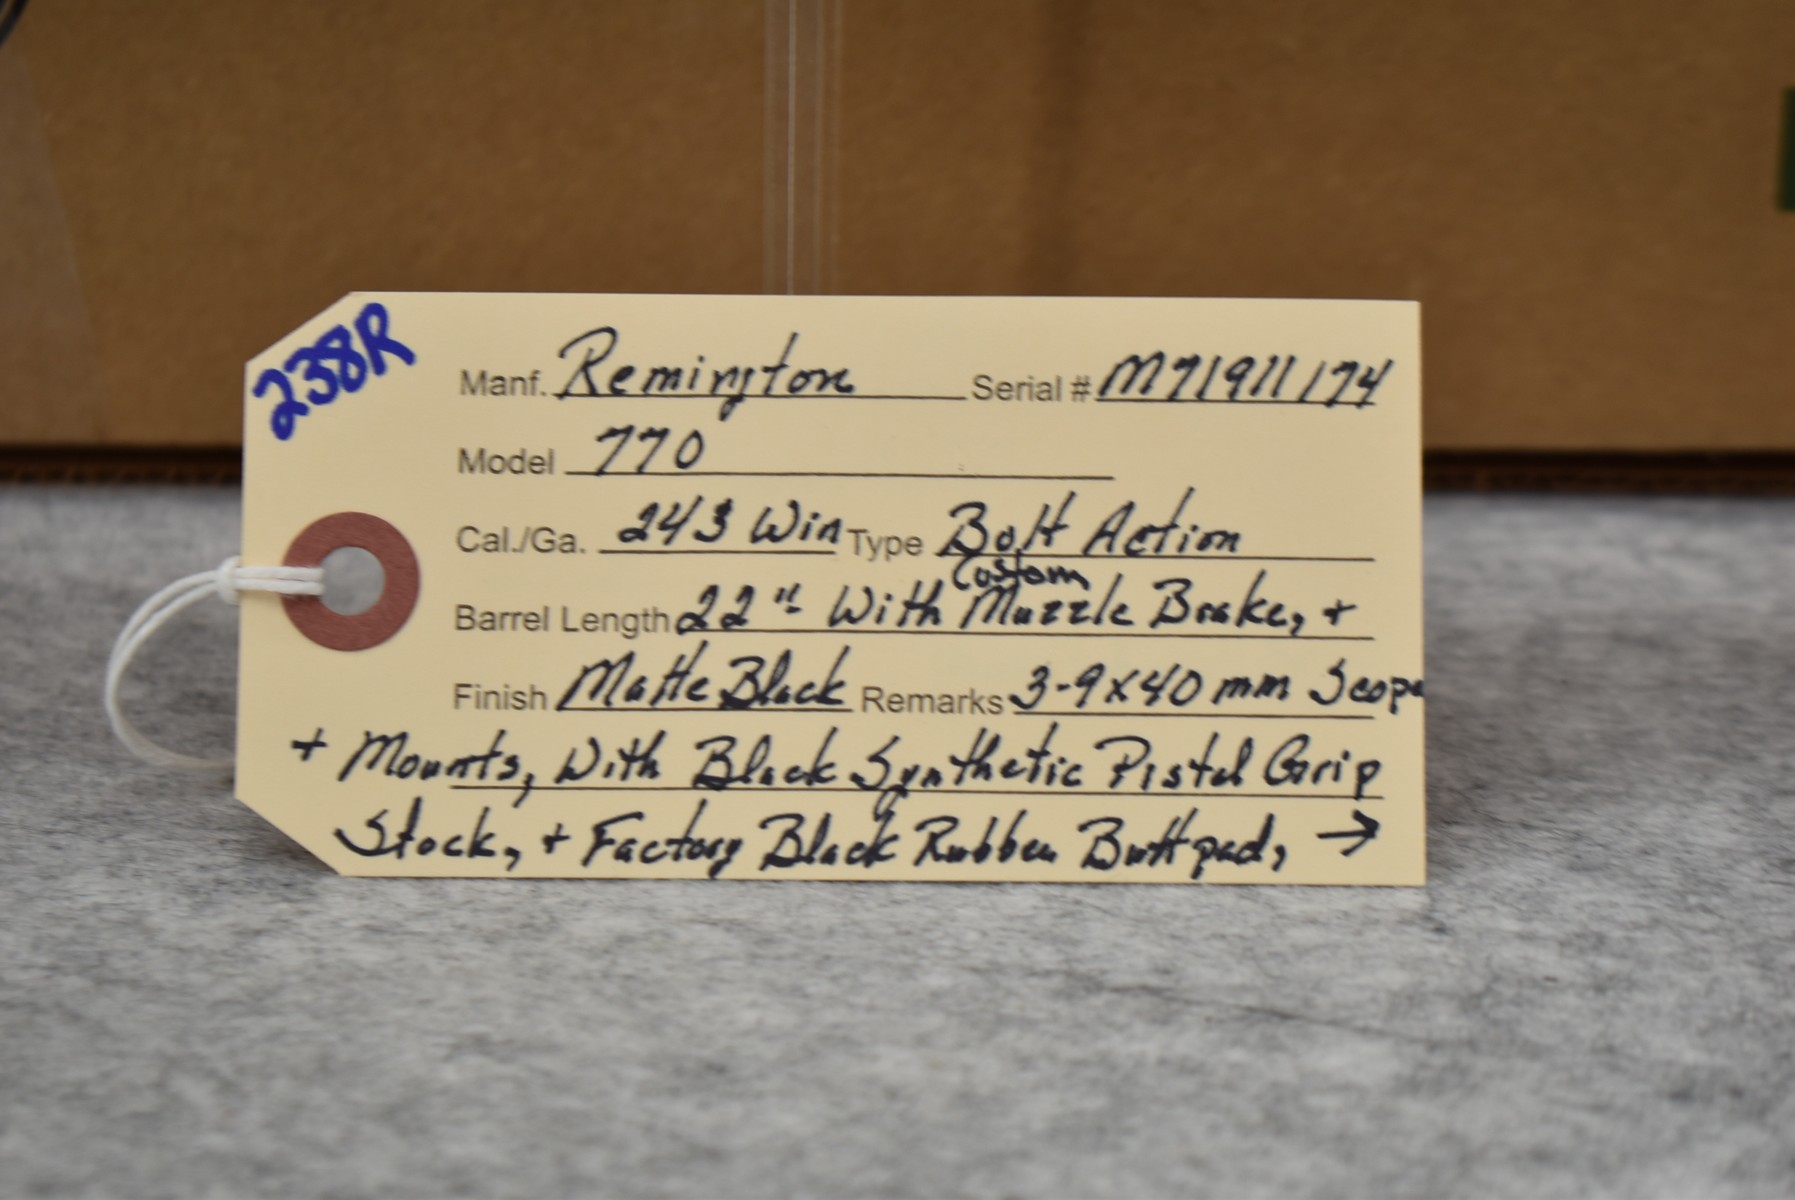 238R
Manf. Remington Serial # M71911174
Model 770
Cal./Ga. 243 Win Type Bolt Action
Custom
Barrel Length 22" With Muzzle Brake, +
Finish Matte Black Remarks 3-9x40 mm Scope
+ Mounts, With Black Synthetic Pistol Grip
Stock, + Factory Black Rubber Buttpad, →